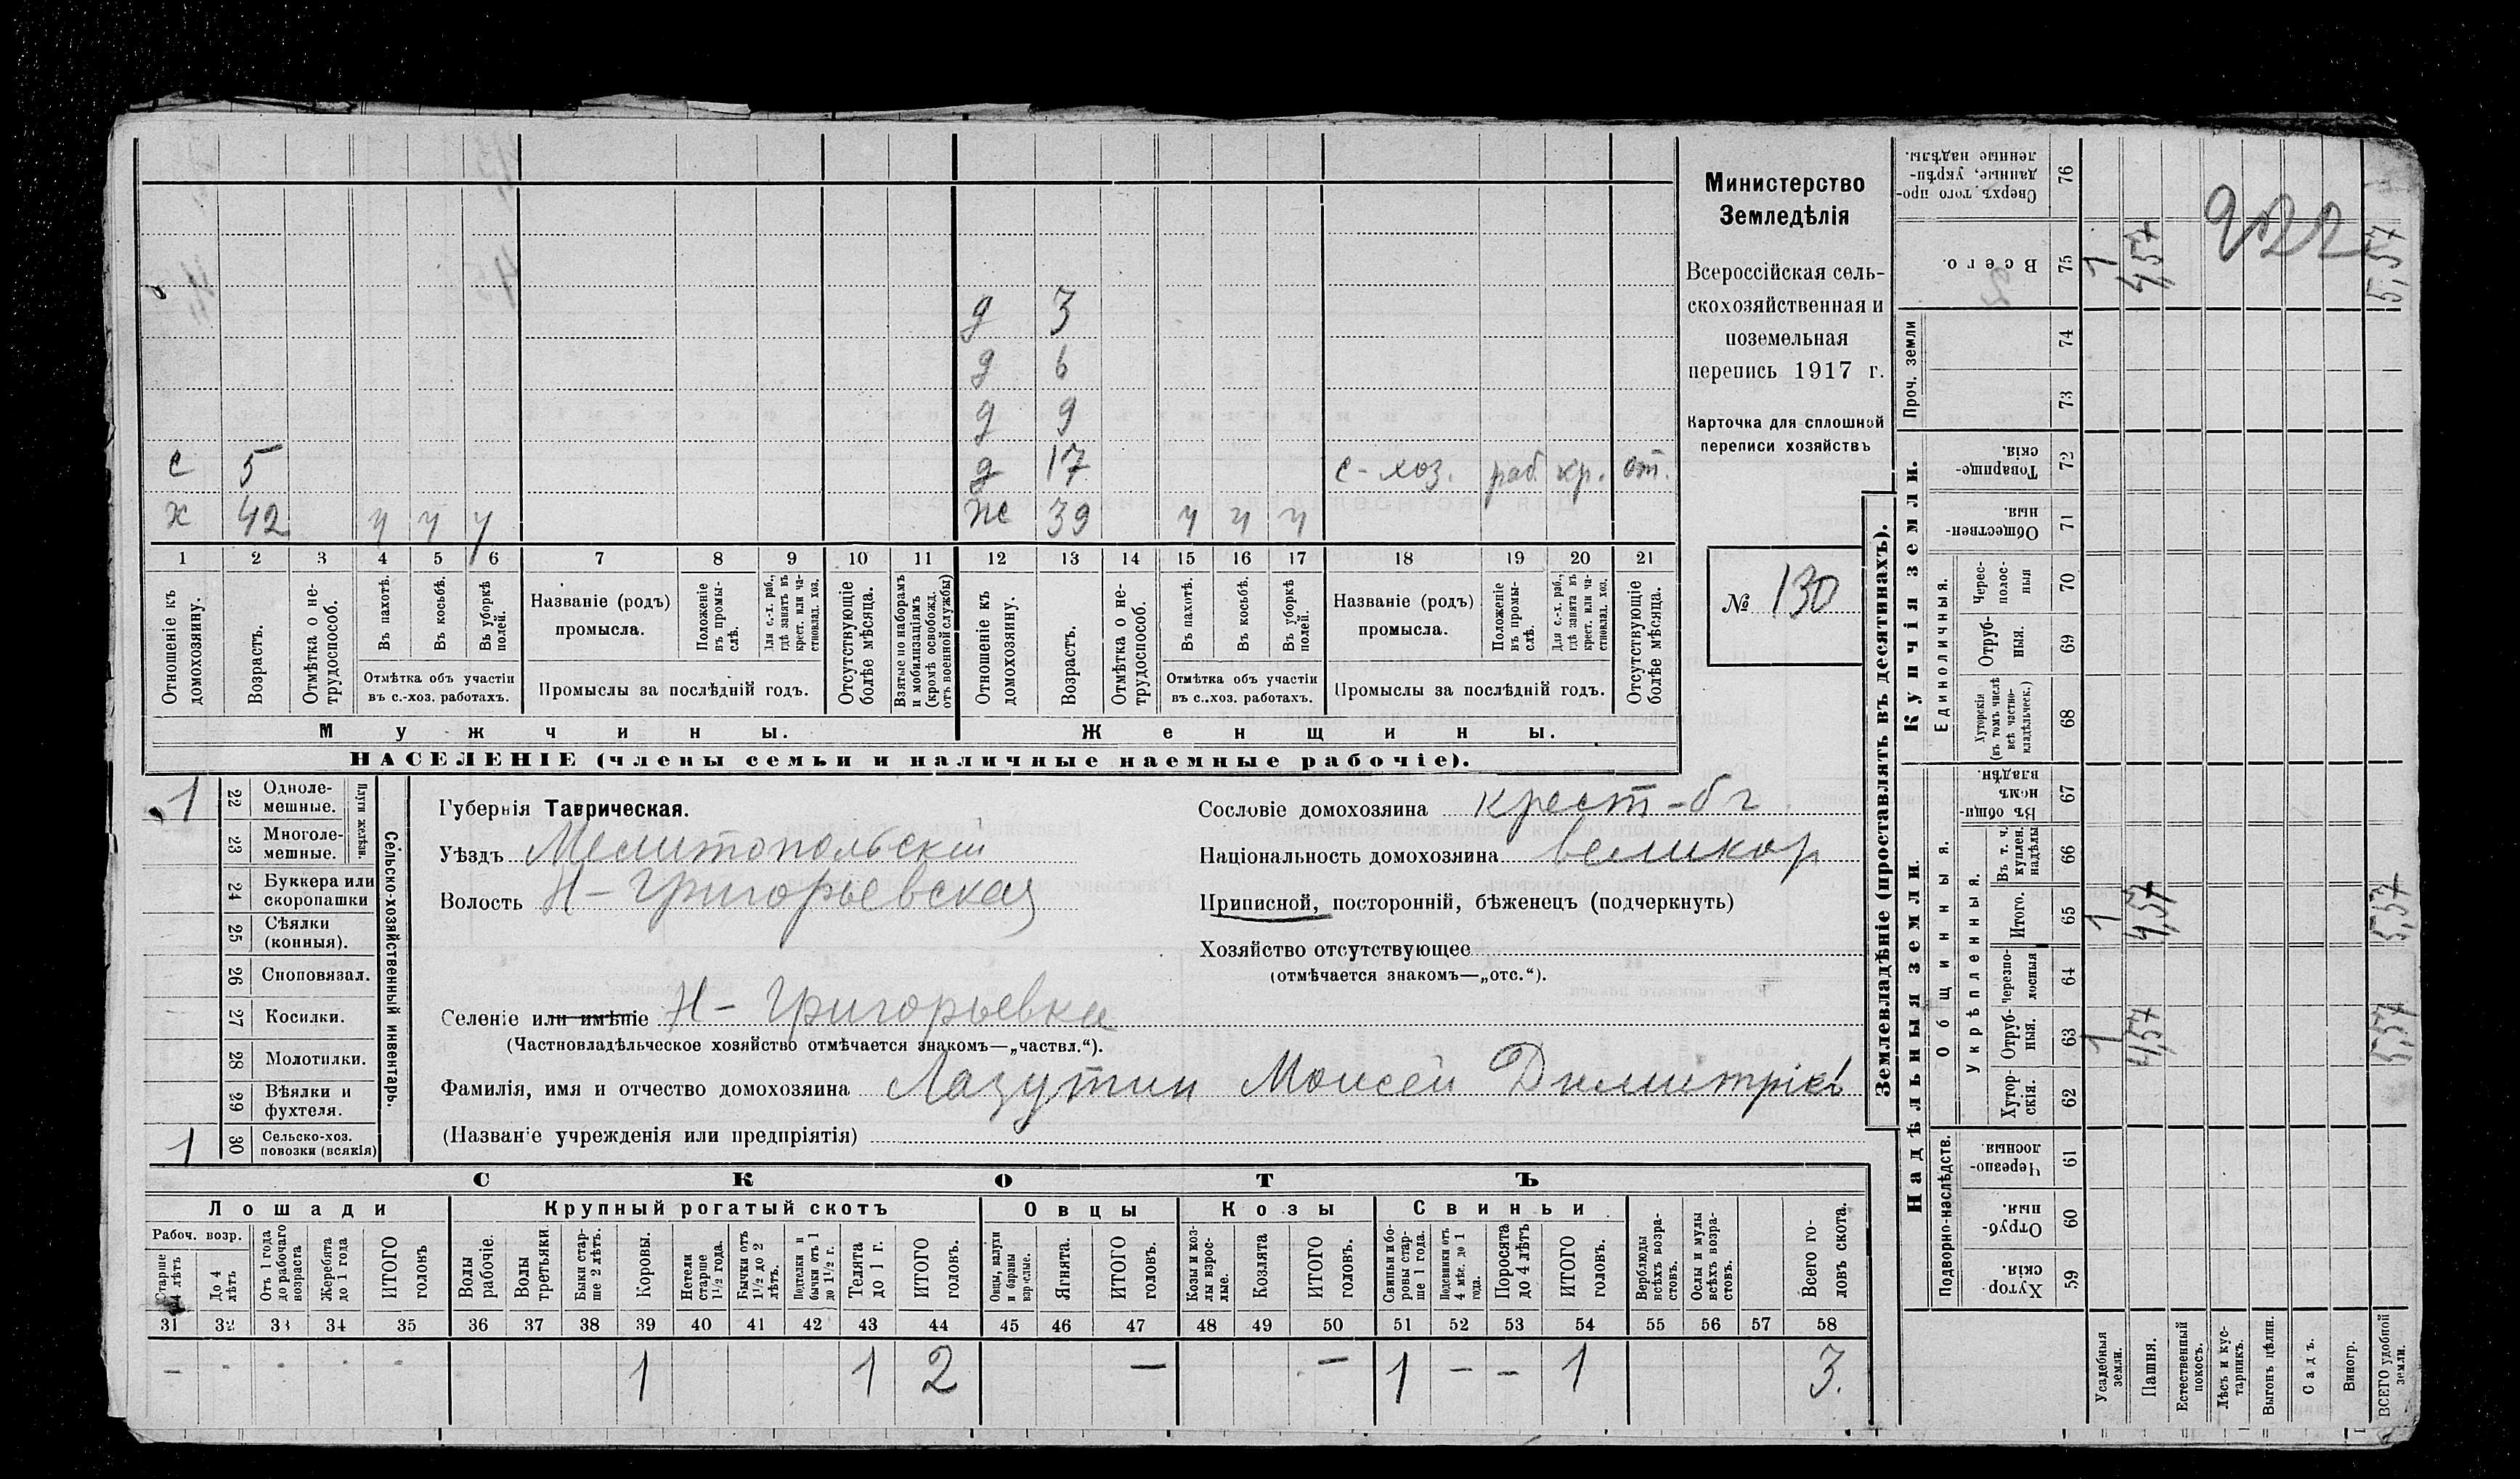 Министерство
Земледѣлія
Всероссійская сель-
скохозяйственная и
поземельная
перепись 1917 г.
Карточка для сплошной
переписи хозяйствъ
№ 130
д 3
д 6
д 9
с 5 д 17 с-хоз. раб. кр. от.
х 42 ч ч ч же 39 ч ч ч
1 2 3 4 5 6 7 8 9 10 11 12 13 14 15 16 17 18 19 20 21
Отношеніе къ домохозяину.
Возрастъ.
Отмѣтка о не-трудоспособ.
Въ пахотѣ.
Въ косьбѣ.
Въ уборкѣ полей.
Отмѣтка объ участіи
въ с.-хоз. работахъ.
Названіе (родъ)
промысла.
Положеніе въ промы-слѣ.
Для с.-х. раб., гдѣ занятъ въ крест. или ча-стновлад. хоз.
Промыслы за послѣдній годъ.
Отсутствующіе болѣе мѣсяца.
Взятые по наборамъ и мобилизаціямъ (кромѣ освобожд. отъ военной службы)
Отношеніе къ домохозяину.
Возрастъ.
Отмѣтка о не-трудоспособ.
Въ пахотѣ.
Въ косьбѣ.
Въ уборкѣ полей.
Отмѣтка объ участіи
въ с.-хоз. работахъ.
Названіе (родъ)
промысла.
Положеніе въ промы-слѣ.
Для с.-х. раб., гдѣ занята въ крест. или ча-стновлад. хоз.
Промыслы за послѣдній годъ.
Отсутствующіе болѣе мѣсяца.
Мужчины. Женщины.
НАСЕЛЕНІЕ (члены семьи и наличные наемные рабочіе).
Сельско-хозяйственный инвентарь.
Плуги желѣзн.
1 22 Одноле-мешные.
23 Многоле-мешные.
24 Буккера или скоропашки
25 Сѣялки (конныя).
26 Сноповязал.
27 Косилки.
28 Молотилки.
29 Вѣялки и фухтеля.
1 30 Сельско-хоз. повозки (всякія)
Губернія Таврическая.
Уѣздъ Мелитопольскій
Волость Н-Григорьевская
Селеніе или имѣніе Н-Григорьевка
(Частновладѣльческое хозяйство отмѣчается знакомъ—„частвл.“).
Фамилія, имя и отчество домохозяина Лазутин Моисей Димитріев
(Названіе учрежденія или предпріятія)
Сословіе домохозяина крест-бг
Національность домохозяина великор
Приписной, посторонній, бѣженецъ (подчеркнуть)
Хозяйство отсутствующее
(отмѣчается знакомъ—„отс.“).
СКОТЪ
Лошади Крупный рогатый скотъ Овцы Козы Свиньи
Рабоч. возр.
Старше 4 лѣтъ
До 4 лѣтъ
Отъ 1 года до рабочаго возраста
Жеребята до 1 года
ИТОГО головъ
Волы рабочіе.
Волы третьяки.
Быки стар-ше 2 лѣтъ.
Коровы.
Нетели старше 1½ года.
Бычки отъ 1½ до 2 лѣтъ.
Подтелки и бычки отъ 1 до 1½ г.
Телята до 1 г.
ИТОГО головъ.
Овцы, валухи и бараны взрослые.
Ягнята.
ИТОГО головъ.
Козы и коз-лы взрос-лые.
Козлята
ИТОГО головъ.
Свиньи и бо-ровы стар-ше 1 года.
Подсвинки отъ 4 мѣс. до 1 года.
Поросята до 4 лѣтъ
ИТОГО головъ.
Верблюды всѣхъ возра-стовъ.
Ослы и мулы всѣхъ возра-стовъ.
Всего го-ловъ скота.
31 32 33 34 35 36 37 38 39 40 41 42 43 44 45 46 47 48 49 50 51 52 53 54 55 56 57 58
- - - - - 1 1 2 — — 1 - - 1 3.
Землевладѣніе (проставлять въ десятинахъ).
922
Сверхъ того про-данные, укрѣп-ленные надѣлы. 76
Всего. 75 1 4,57 5,57
Проч. земли 74
73
Купчія земли.
Товарище-скія. 72
Обществен-ныя 71
Единоличныя.
Черес-полос-ныя 70
Отруб-ныя. 69
Хуторскія (въ томъ числѣ всѣ частно-владѣльческ.) 68
Надѣльныя земли.
Общинныя.
Въ общи номъ владѣн. 67
Укрѣпленныя.
Въ т. ч. куплен. надѣлы 66
Итого. 65 1 4,57 5,57
Черезпо-лосныя 64
Отруб-ныя. 63 1 4,57 5,57
Хутор-скія. 62
Подворно-наслѣдств.
Черезпо-лосныя 61
Отруб-ныя. 60
Хутор-скія 59
Усадебныя земли.
Пашня.
Естественный покосъ.
Лѣсъ и кус-тарникъ.
Выгонъ цѣлин.
Садъ.
Виногр.
ВСЕГО удобной земли.